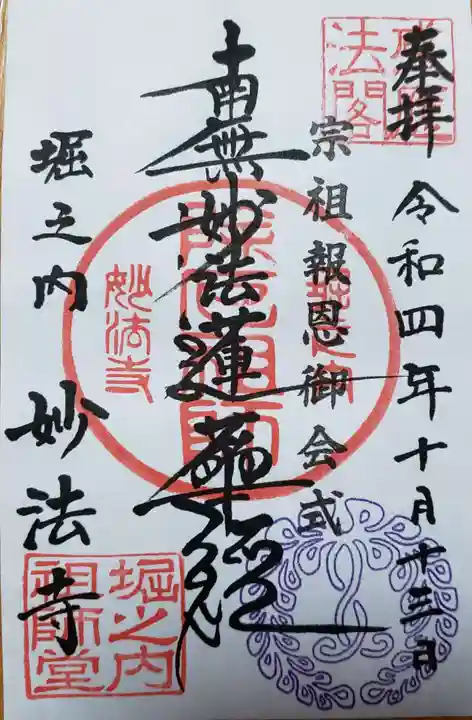 奉拝
令和四年十月廿三日
宗祖報恩御会式
南無妙法蓮華経
堀之内
妙法寺
法閣
妙法寺
堀之内
祖師堂